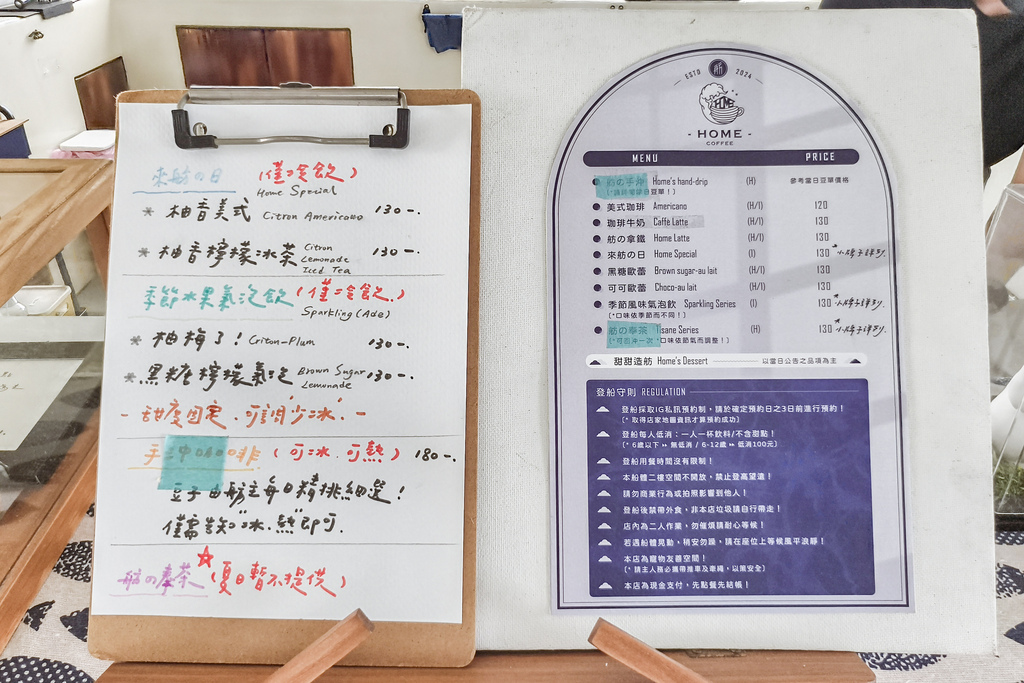 來舫の日 (僅冷飲)
Home Special
* 柚香美式 Citron Americano 130-.
* 柚香檸檬冰茶 Citron Lemonade Iced Tea 130-.
季節水果氣泡飲 (僅冷飲.)
Sparkling (Ade)
* 柚梅了! Criton-Plum 130-.
* 黑糖檸檬氣泡 Brown Sugar Lemonade 130-.
- 甜度固定、可調"少冰". -
手沖咖啡 (可冰.可熱) 180-.
豆子由舫主每日精挑細選!
僅需告知"冰.熱"即可.
舫の奉茶 (夏日暫不提供)
ESTD 2024
HOME
- HOME -
COFFEE
MENU PRICE
舫の手沖 Home's hand-drip (H) 參考當日豆單價格
美式咖啡 Americano (H/I) 120
咖啡牛奶 Caffè Latte (H/I) 130
舫の拿鐵 Home Latte (H/I) 130
來舫の日 Home Special (I) 130 *小牌子詳列.
黑糖歐蕾 Brown sugar-au lait (H/I) 130
可可歐蕾 Choco-au lait (H/I) 130
季節風味氣泡飲 Sparkling Series (I) 130 *小牌子詳列.
(*口味依季節而不同!)
舫の奉茶 Tisane Series (H) 130 *小牌子詳列.
(*可回沖一次 *口味依節氣而調整!)
甜甜造舫 Home's Dessert 以當日公告之品項為主
登船守則 REGULATION
登船採取IG私訊預約制,請於確定預約日之3日前進行預約!
(* 取得店家地圖資訊才算預約成功)
登船每人低消:一人一杯飲料/不含甜點!
(* 6歲以下 ▸▸ 無低消 / 6-12歲 ▸▸ 低消100元)
登船用餐時間沒有限制!
本船體二樓空間不開放,禁止登高望遠!
請勿商業行為或拍照影響到他人!
登船後禁帶外食,非本店垃圾請自行帶走!
店內為二人作業,勿催煩請耐心等候!
若遇船體晃動,稍安勿躁,請在座位上等候風平浪靜!
本店為寵物友善空間!
(* 請主人務必攜帶推車及牽繩,以策安全)
本店為現金支付,先點餐先結帳!